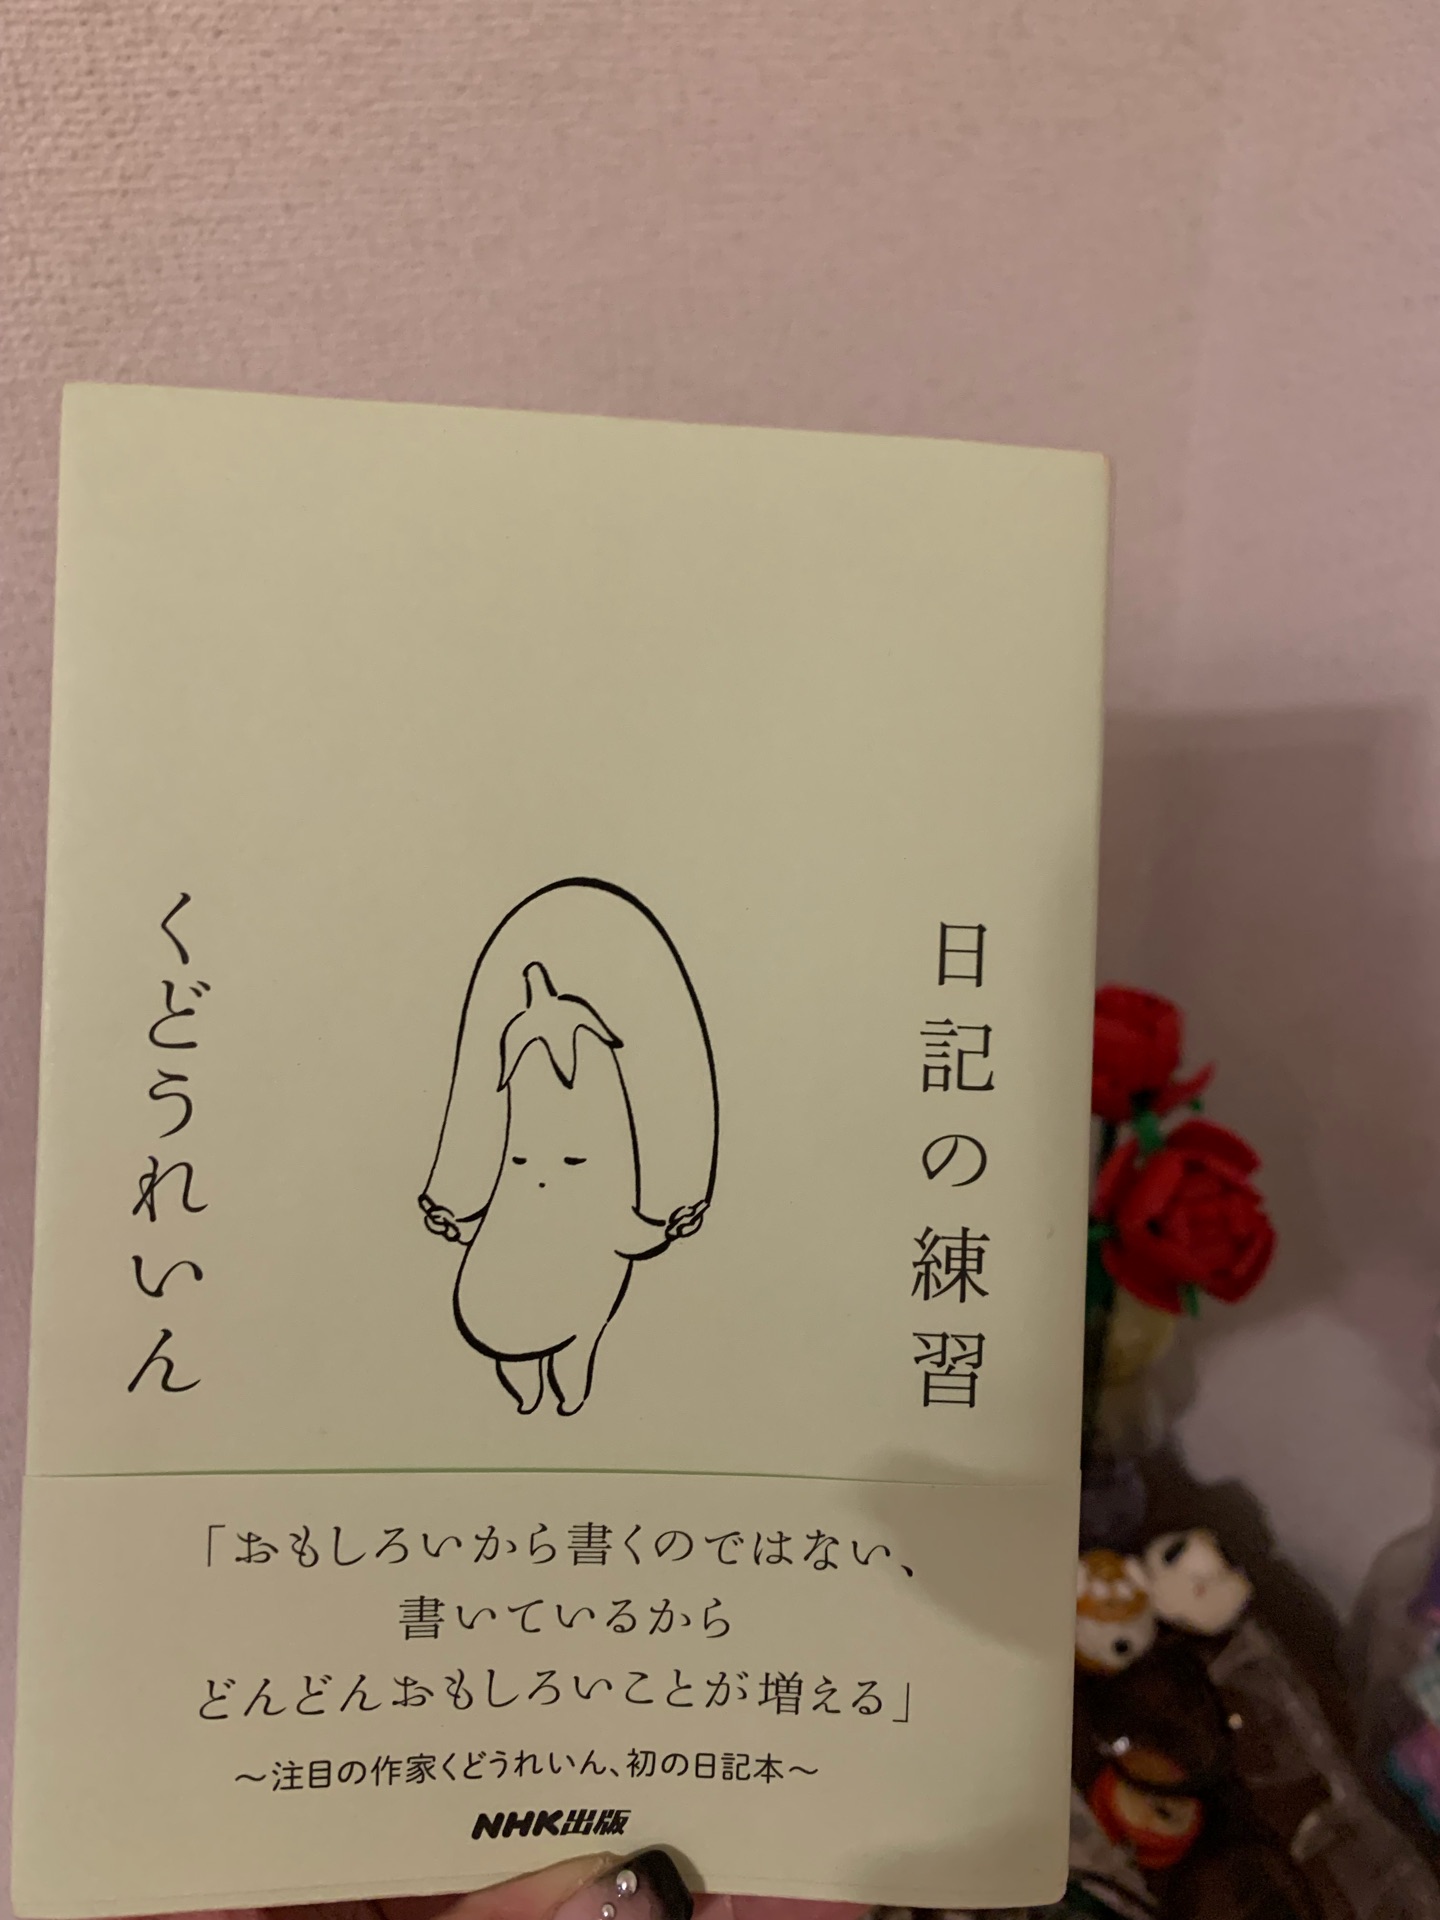 日記の練習
くどうれいん
「おもしろいから書くのではない、
書いているから
どんどんおもしろいことが増える」
～注目の作家くどうれいん、初の日記本～
NHK出版